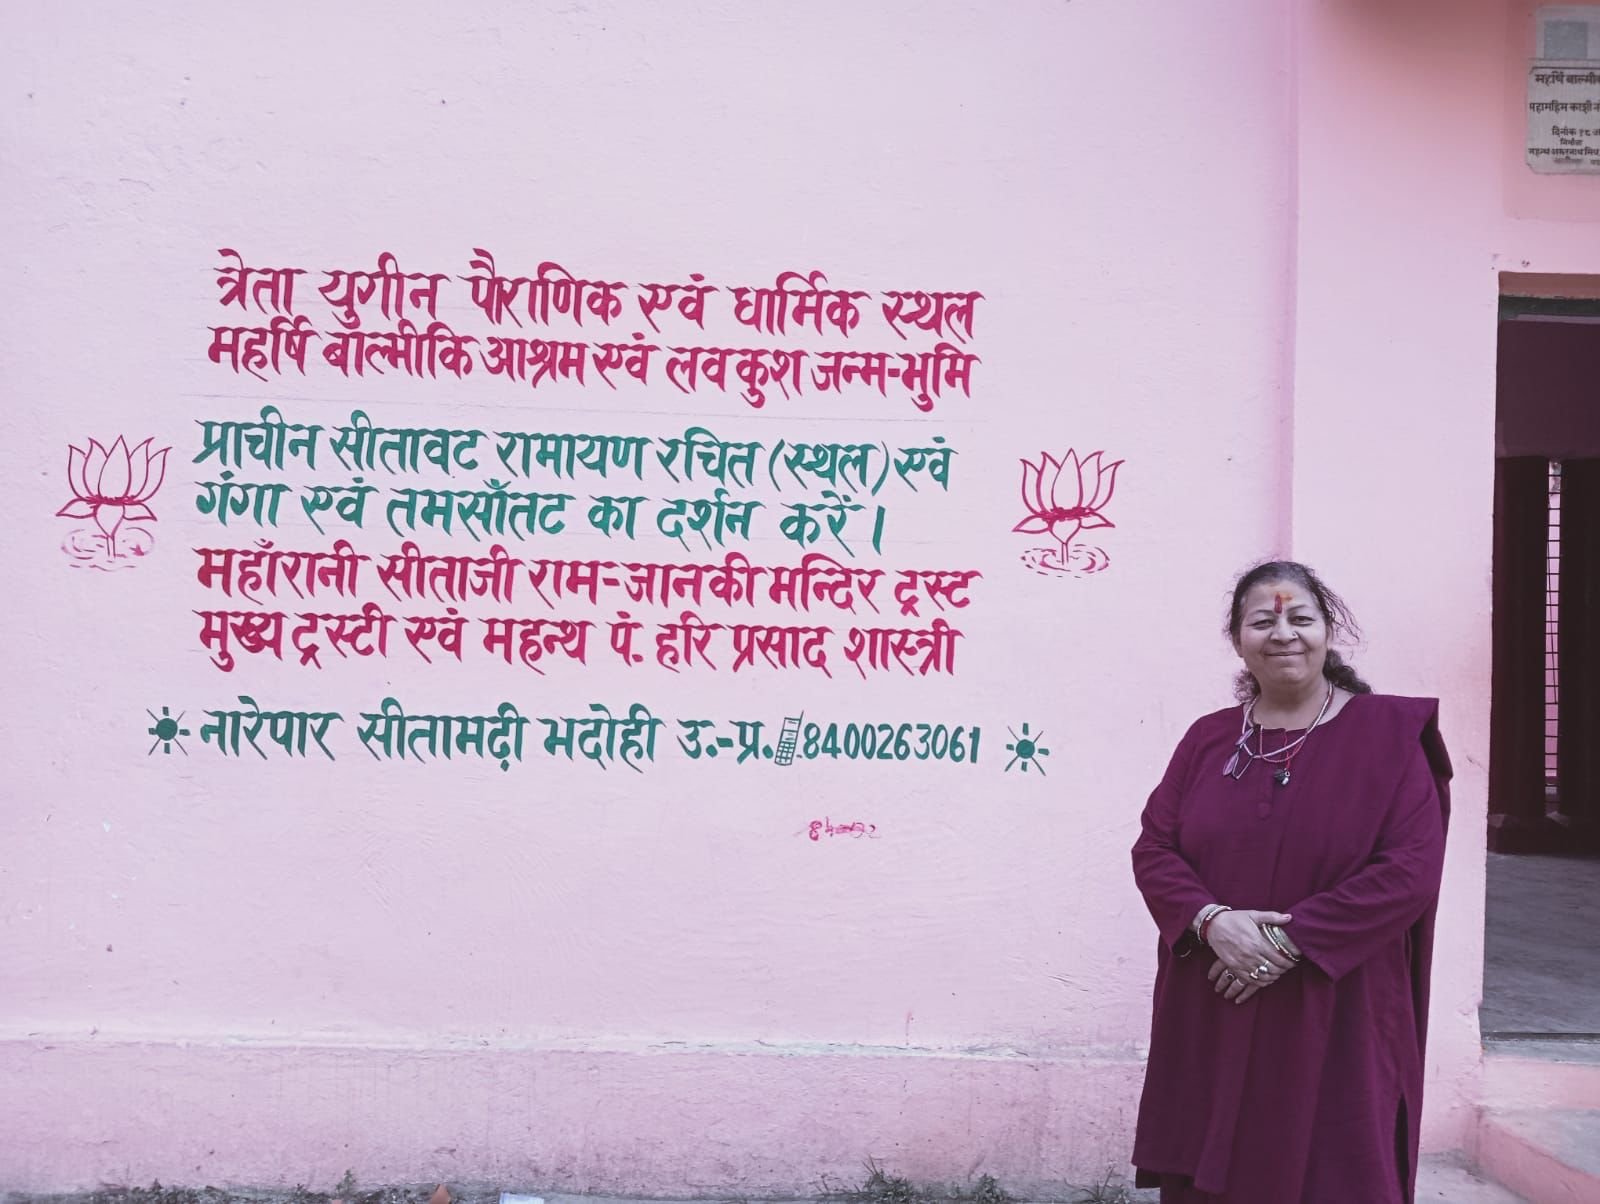 त्रेता युगीन पौराणिक एवं धार्मिक स्थल
महर्षि बाँल्मीकि आश्रम एवं लवकुश जन्म-भुमि
प्राचीन सीतावट रामायण रचित (स्थल) एवं
गंगा एवं तमसाँतट का दर्शन करें।
महाँरानी सीताजी राम-जानकी मन्दिर ट्रस्ट
मुख्य ट्रस्टी एवं महन्थ पं. हरि प्रसाद शास्त्री
नारेपार सीतामढ़ी भदोही उ.-प्र. 8400263061
महर्षि बाल्मी
महामहिम काशी
दिनांक १८
निर्माता